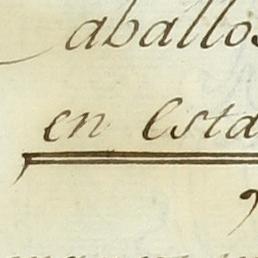 aballos
en esta